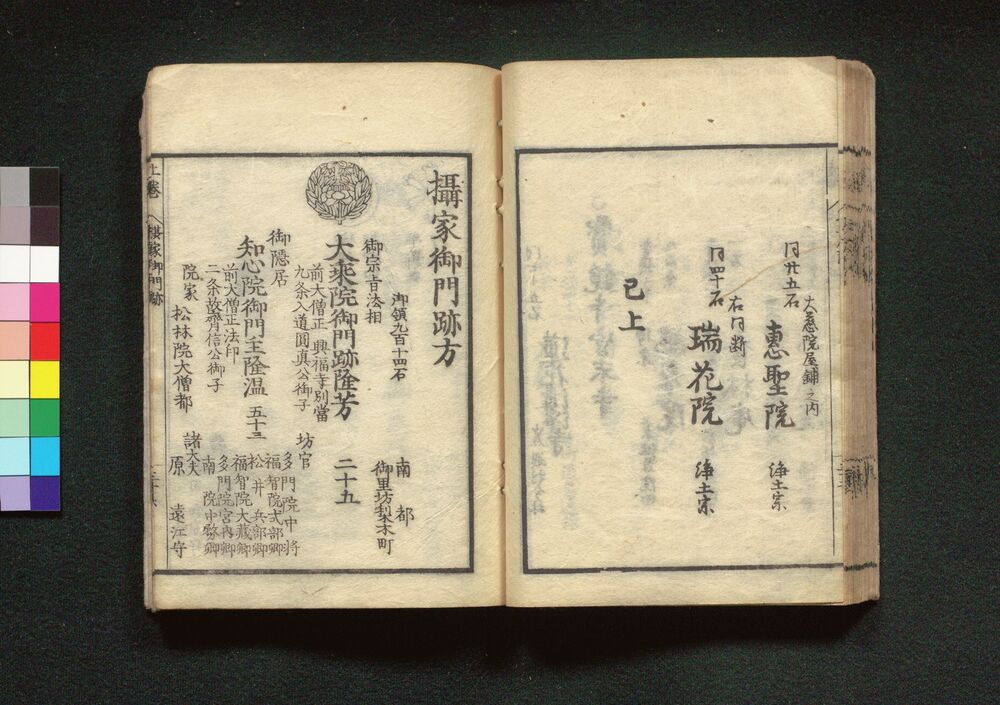 同廿五石
大慈院屋鋪之内
恵聖院
浄土宗
同四十石
右同断
瑞花院
浄土宗
已上
攝家御門跡方
御領九百十四石
御宗旨法相
南都
御里坊梨木町
大乗院御門跡隆芳
二十九
前大僧正興福寺別當
九条入道圓真公御子
御隠居
知心院御門主隆温
五十三
前大僧正法印
二条故齊信公御子
院家
松林院大僧都
坊官
多門院中将
福智院式部卿
松井兵部卿
福智院大蔵卿
多門院宮内卿
南院中務卿
諸大夫
原
遠江守
上巻
攝家御門跡